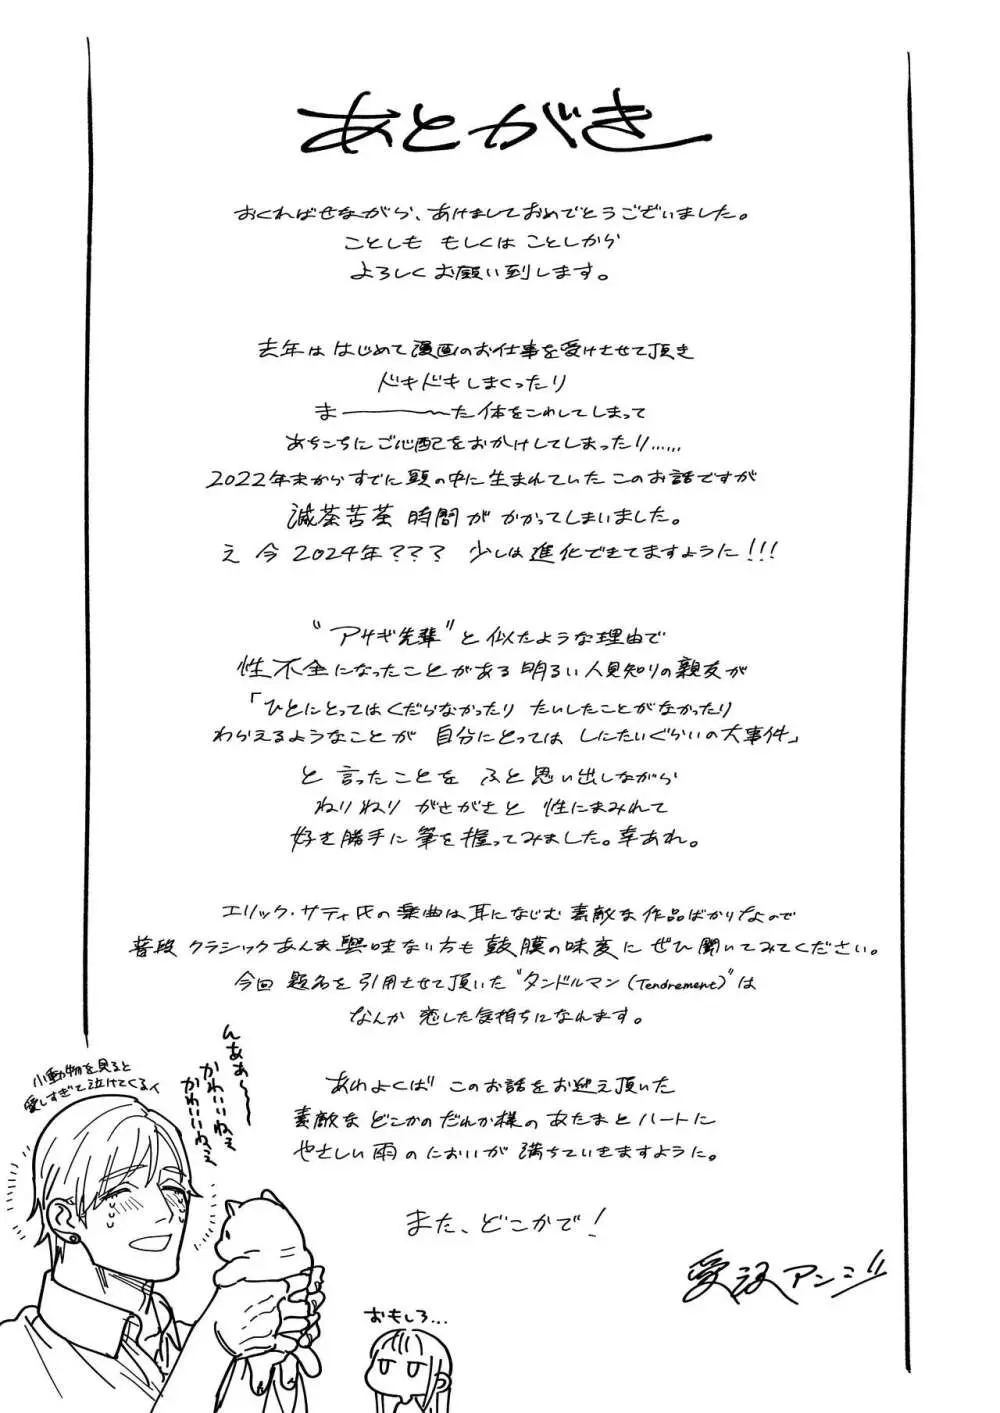 あとがき
おくればせながら、あけましておめでとうございました。
ことしも もしくは ことしから
よろしくお願い到します。
去年は はじめて漫画のお仕事を受けさせて頂き
ドキドキしまくったり
ま────〜た体をこわしてしまって
あちこちにご心配をおかけしてしまったり……
2022年末からすでに頭の中に生まれていたこのお話ですが
滅茶苦茶 時間が かかってしまいました。
え 今 2024年??? 少しは進化できてますように!!!
"アサギ先輩"と似たような理由で
性不全になったことがある明るい人見知りの親友が
「ひとにとってはくだらなかったり たいしたことがなかったり
わらえるようなことが 自分にとっては しにたいぐらいの大事件」
と 言ったことを ふと思い出しながら
ねりねり がさがさと 性にまみれて
好き勝手に筆を握ってみました。幸あれ。
エリック・サティ氏の楽曲は耳になじむ素敵な作品ばかりなので
普段クラシックあんま興味ない方も鼓膜の味変にぜひ聞いてみてください。
今回 題名を引用させて頂いた"タンドルマン(Tendrement)"は
なんか 恋した気持ちになれます。
あわよくば このお話をお迎え頂いた
素敵な どこかのだれか様の あたまとハートに
やさしい雨のにおいが 満ちていきますように。
また、どこかで!
愛沢アンジ
小動物を見ると
愛しすぎて泣けてくる人
んああ〜──
かわいいねぇ
かわいいねぇ
おもしろ…